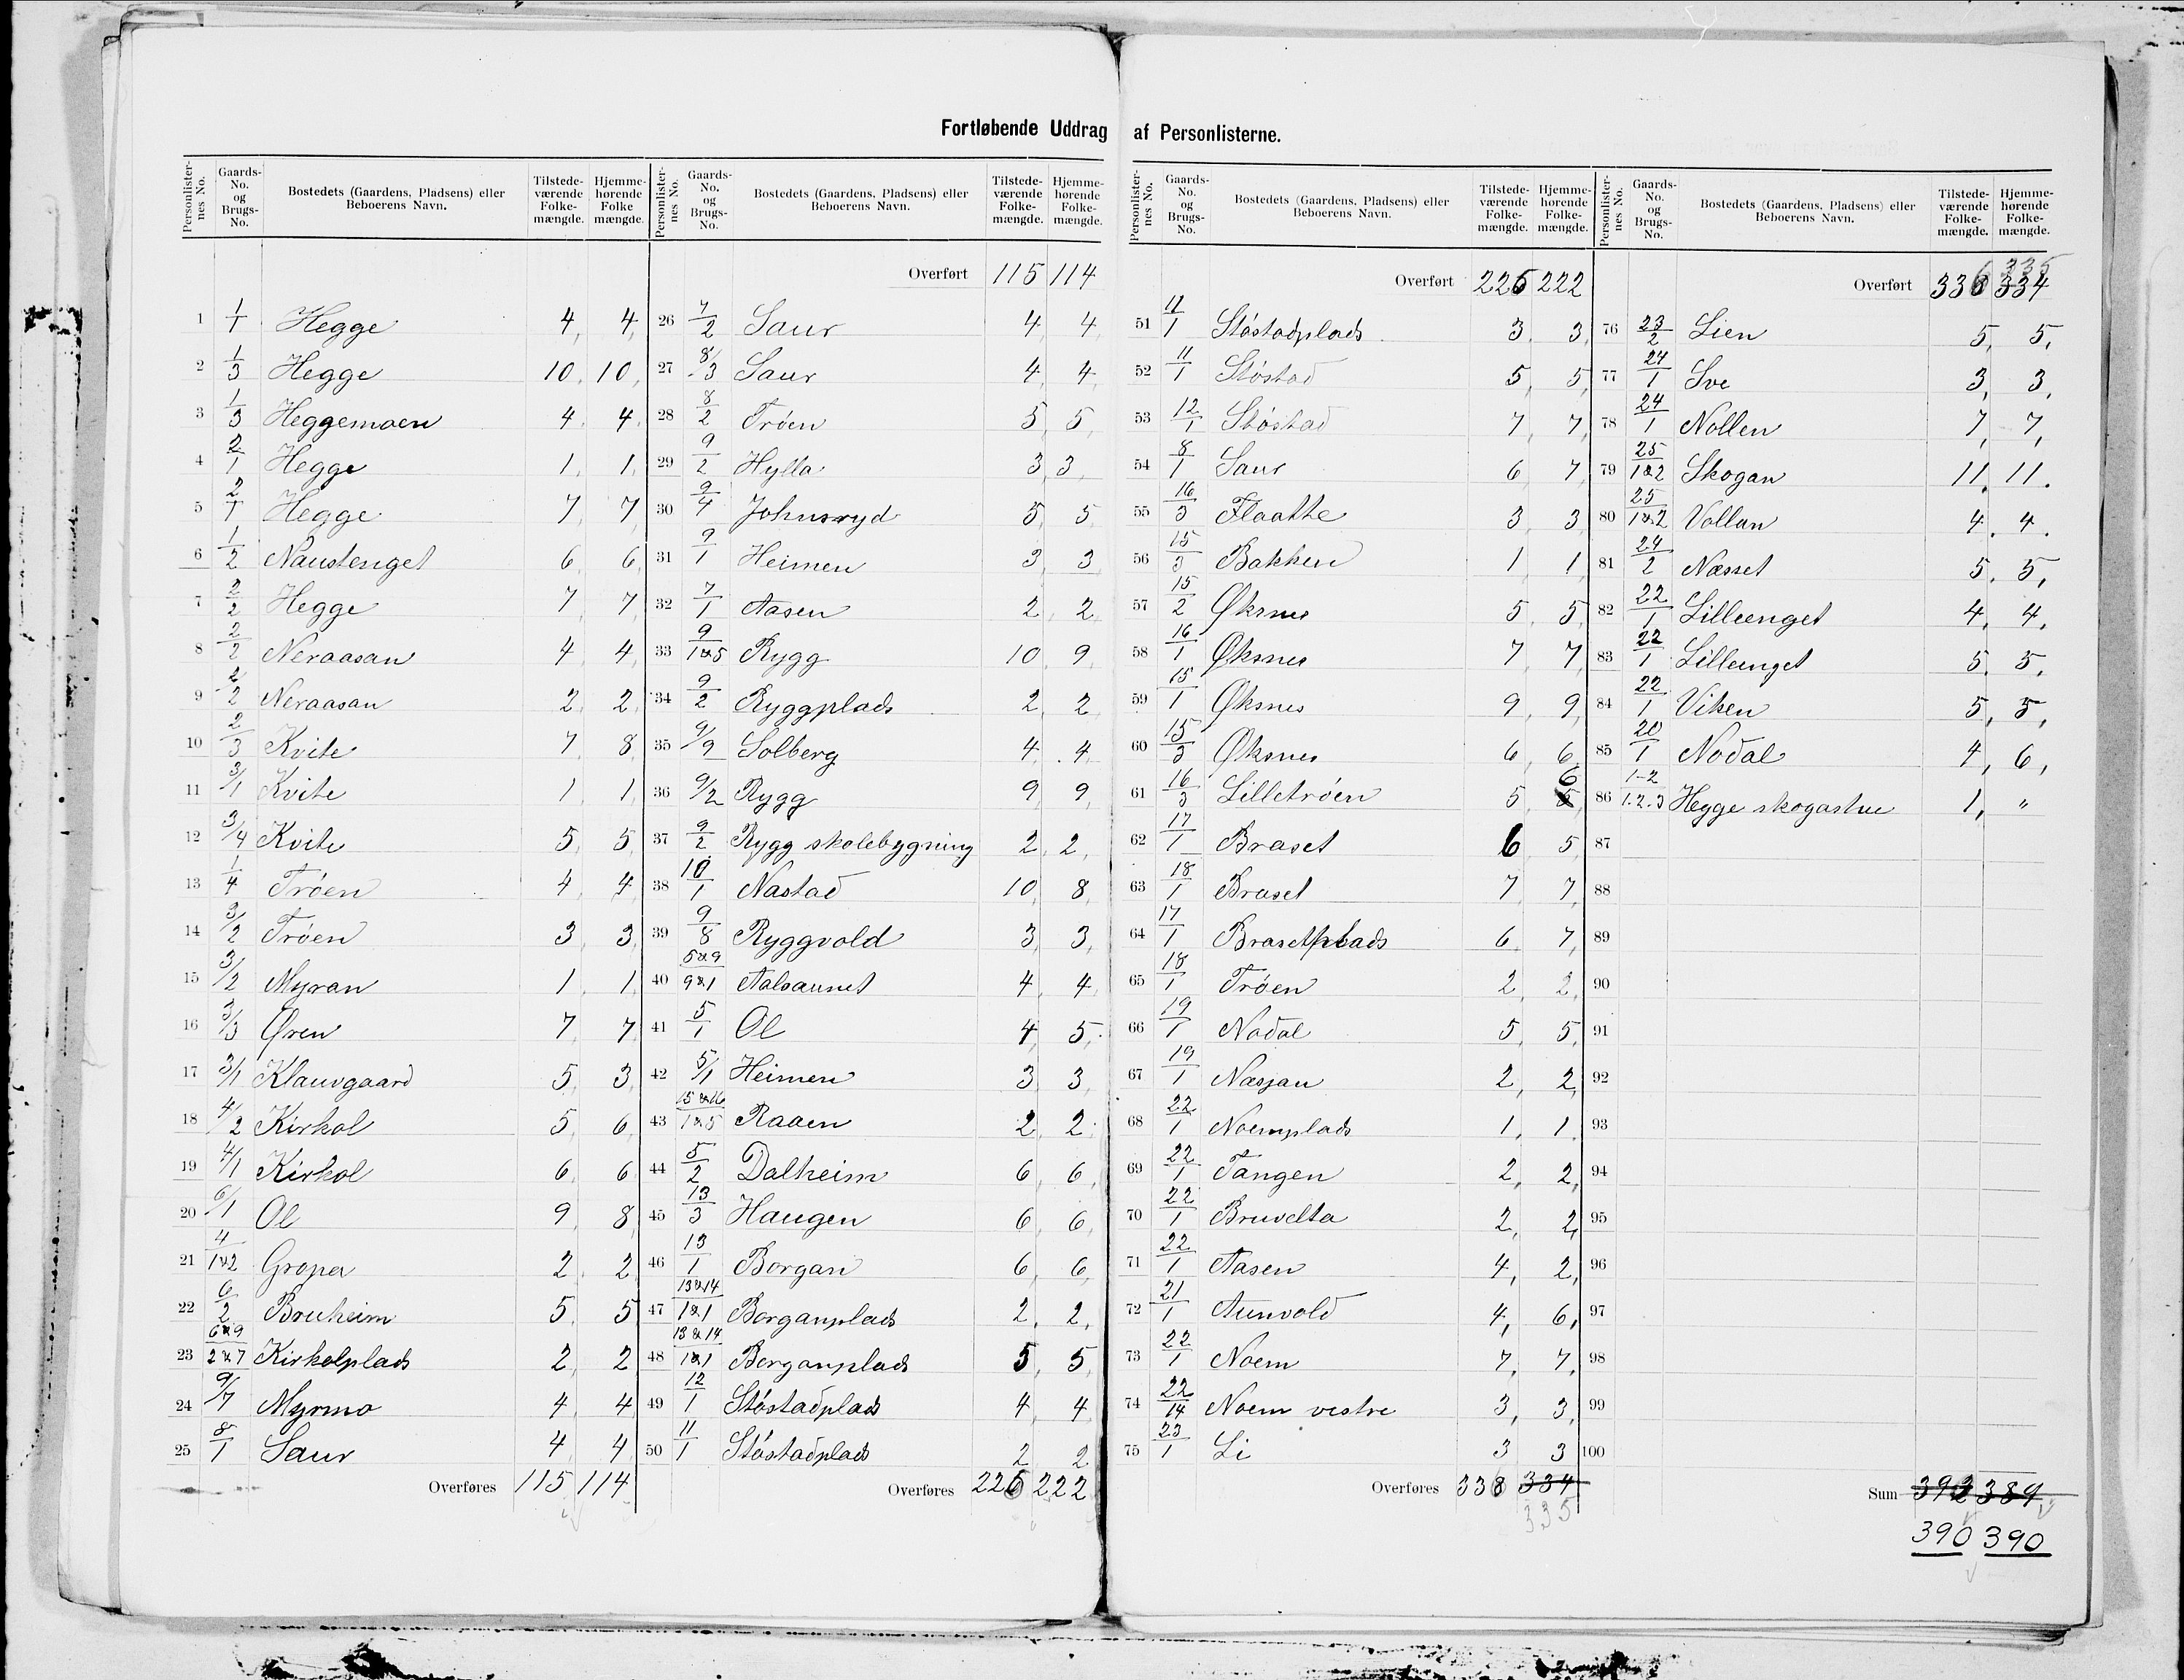 Fortløbende Uddrag af Personlisterne.
Personlisternes No. Gaards-No. og Brugs-No. Bostedets (Gaardens, Pladsens) eller Beboerens Navn. Tilstedeværende Folkemængde. Hjemmehørende Folkemængde.
1 1/1 Hegge 4 4
2 1/3 Hegge 10 10
3 1/3 Heggemoen 4 4
4 2/1 Hegge 1 1
5 2/1 Hegge 7 7
6 1/2 Naustenget 6 6
7 2/2 Hegge 7 7
8 2/2 Neraasan 4 4
9 2/2 Neraasan 2 2
10 2/3 Kvite 7 8
11 3/1 Kvite 1 1
12 3/4 Kvite 5 5
13 1/4 Trøen 4 4
14 3/2 Trøen 3 3
15 3/2 Myran 1 1
16 3/3 Øren 7 7
17 3/1 Klauvgaard 5 3
18 4/2 Kirkol 5 6
19 4/1 Kirkol 6 6
20 6/1 Ol 9 8
21 4/1&2 Gropa 2 2
22 6/2 Bruheim 5 5
23 6&9/2&7 Kirkolplads 2 2
24 9/7 Myrmo 4 4
25 8/1 Saur 4 4
Overføres 115 114
Personlisternes No. Gaards-No. og Brugs-No. Bostedets (Gaardens, Pladsens) eller Beboerens Navn. Tilstedeværende Folkemængde. Hjemmehørende Folkemængde.
Overført 115 114
26 7/2 Saur 4 4
27 8/3 Saur 4 4
28 8/2 Trøen 5 5
29 9/2 Hylla 3 3
30 9/4 Johnsryd 5 5
31 9/1 Heimen 3 3
32 7/1 Aasen 2 2
33 9/1&5 Rygg 10 9
34 9/2 Ryggplads 2 2
35 9/9 Solberg 4 4
36 9/2 Rygg 9 9
37 9/2 Rygg skolebygning 2 2
38 10/1 Nastad 10 8
39 9/8 Ryggvold 3 3
40 5&9/9&1 Aalsaunet 4 4
41 5/1 Ol 4 5
42 5/1 Heimen 3 3
43 15&16/1&5 Raaen 2 2
44 5/2 Dalheim 6 6
45 13/3 Haugen 6 6
46 13/1 Borgan 6 6
47 13&14/1&1 Borganplads 2 2
48 13&14/1&1 Borganplads 5 5
49 12/1 Støstadplads 4 4
50 11/1 Støstadplads 2 2
Overføres 225 222
Personlisternes No. Gaards-No. og Brugs-No. Bostedets (Gaardens, Pladsens) eller Beboerens Navn. Tilstedeværende Folkemængde. Hjemmehørende Folkemængde.
Overført 225 222
51 11/1 Støstadplads 3 3
52 11/1 Støstad 5 5
53 12/1 Støstad 7 7
54 8/1 Saur 6 7
55 16/3 Flaatte 3 3
56 15/3 Bakken 1 1
57 15/2 Øksnes 5 5
58 16/1 Øksnes 7 7
59 15/1 Øksnes 9 9
60 15/3 Øksnes 6 6
61 16/3 Lilletrøen 5 6
62 17/1 Braset 6 5
63 18/1 Braset 7 7
64 17/1 Brasetplads 6 7
65 18/1 Trøen 2 2
66 19/1 Nodal 5 5
67 19/1 Næsjan 2 2
68 22/1 Noemplads 1 1
69 22/1 Tangen 2 2
70 22/1 Bruvelta 2 2
71 22/1 Aasen 4 2
72 21/1 Aunvold 4 6
73 22/1 Noem 7 7
74 22/14 Noem vestre 3 3
75 23/1 Li 3 3
Overføres 338 334
335
Personlisternes No. Gaards-No. og Brugs-No. Bostedets (Gaardens, Pladsens) eller Beboerens Navn. Tilstedeværende Folkemængde. Hjemmehørende Folkemængde.
335
Overført 336 334
76 23/2 Lien 5 5
77 24/1 Sve 3 3
78 24/1 Nollen 7 7
79 25/1&2 Skogan 11 11
80 25/1&2 Vollan 4 4
81 24/2 Næsset 5 5
82 22/1 Lilleenget 4 4
83 22/1 Lilleenget 5 5
84 22/1 Viken 5 5
85 20/1 Nodal 4 6
86 1-2/1.2.3 Hegge skogastue 1 "
87
88
89
90
91
92
93
94
95
96
97
98
99
100
Sum 392 389
390 390